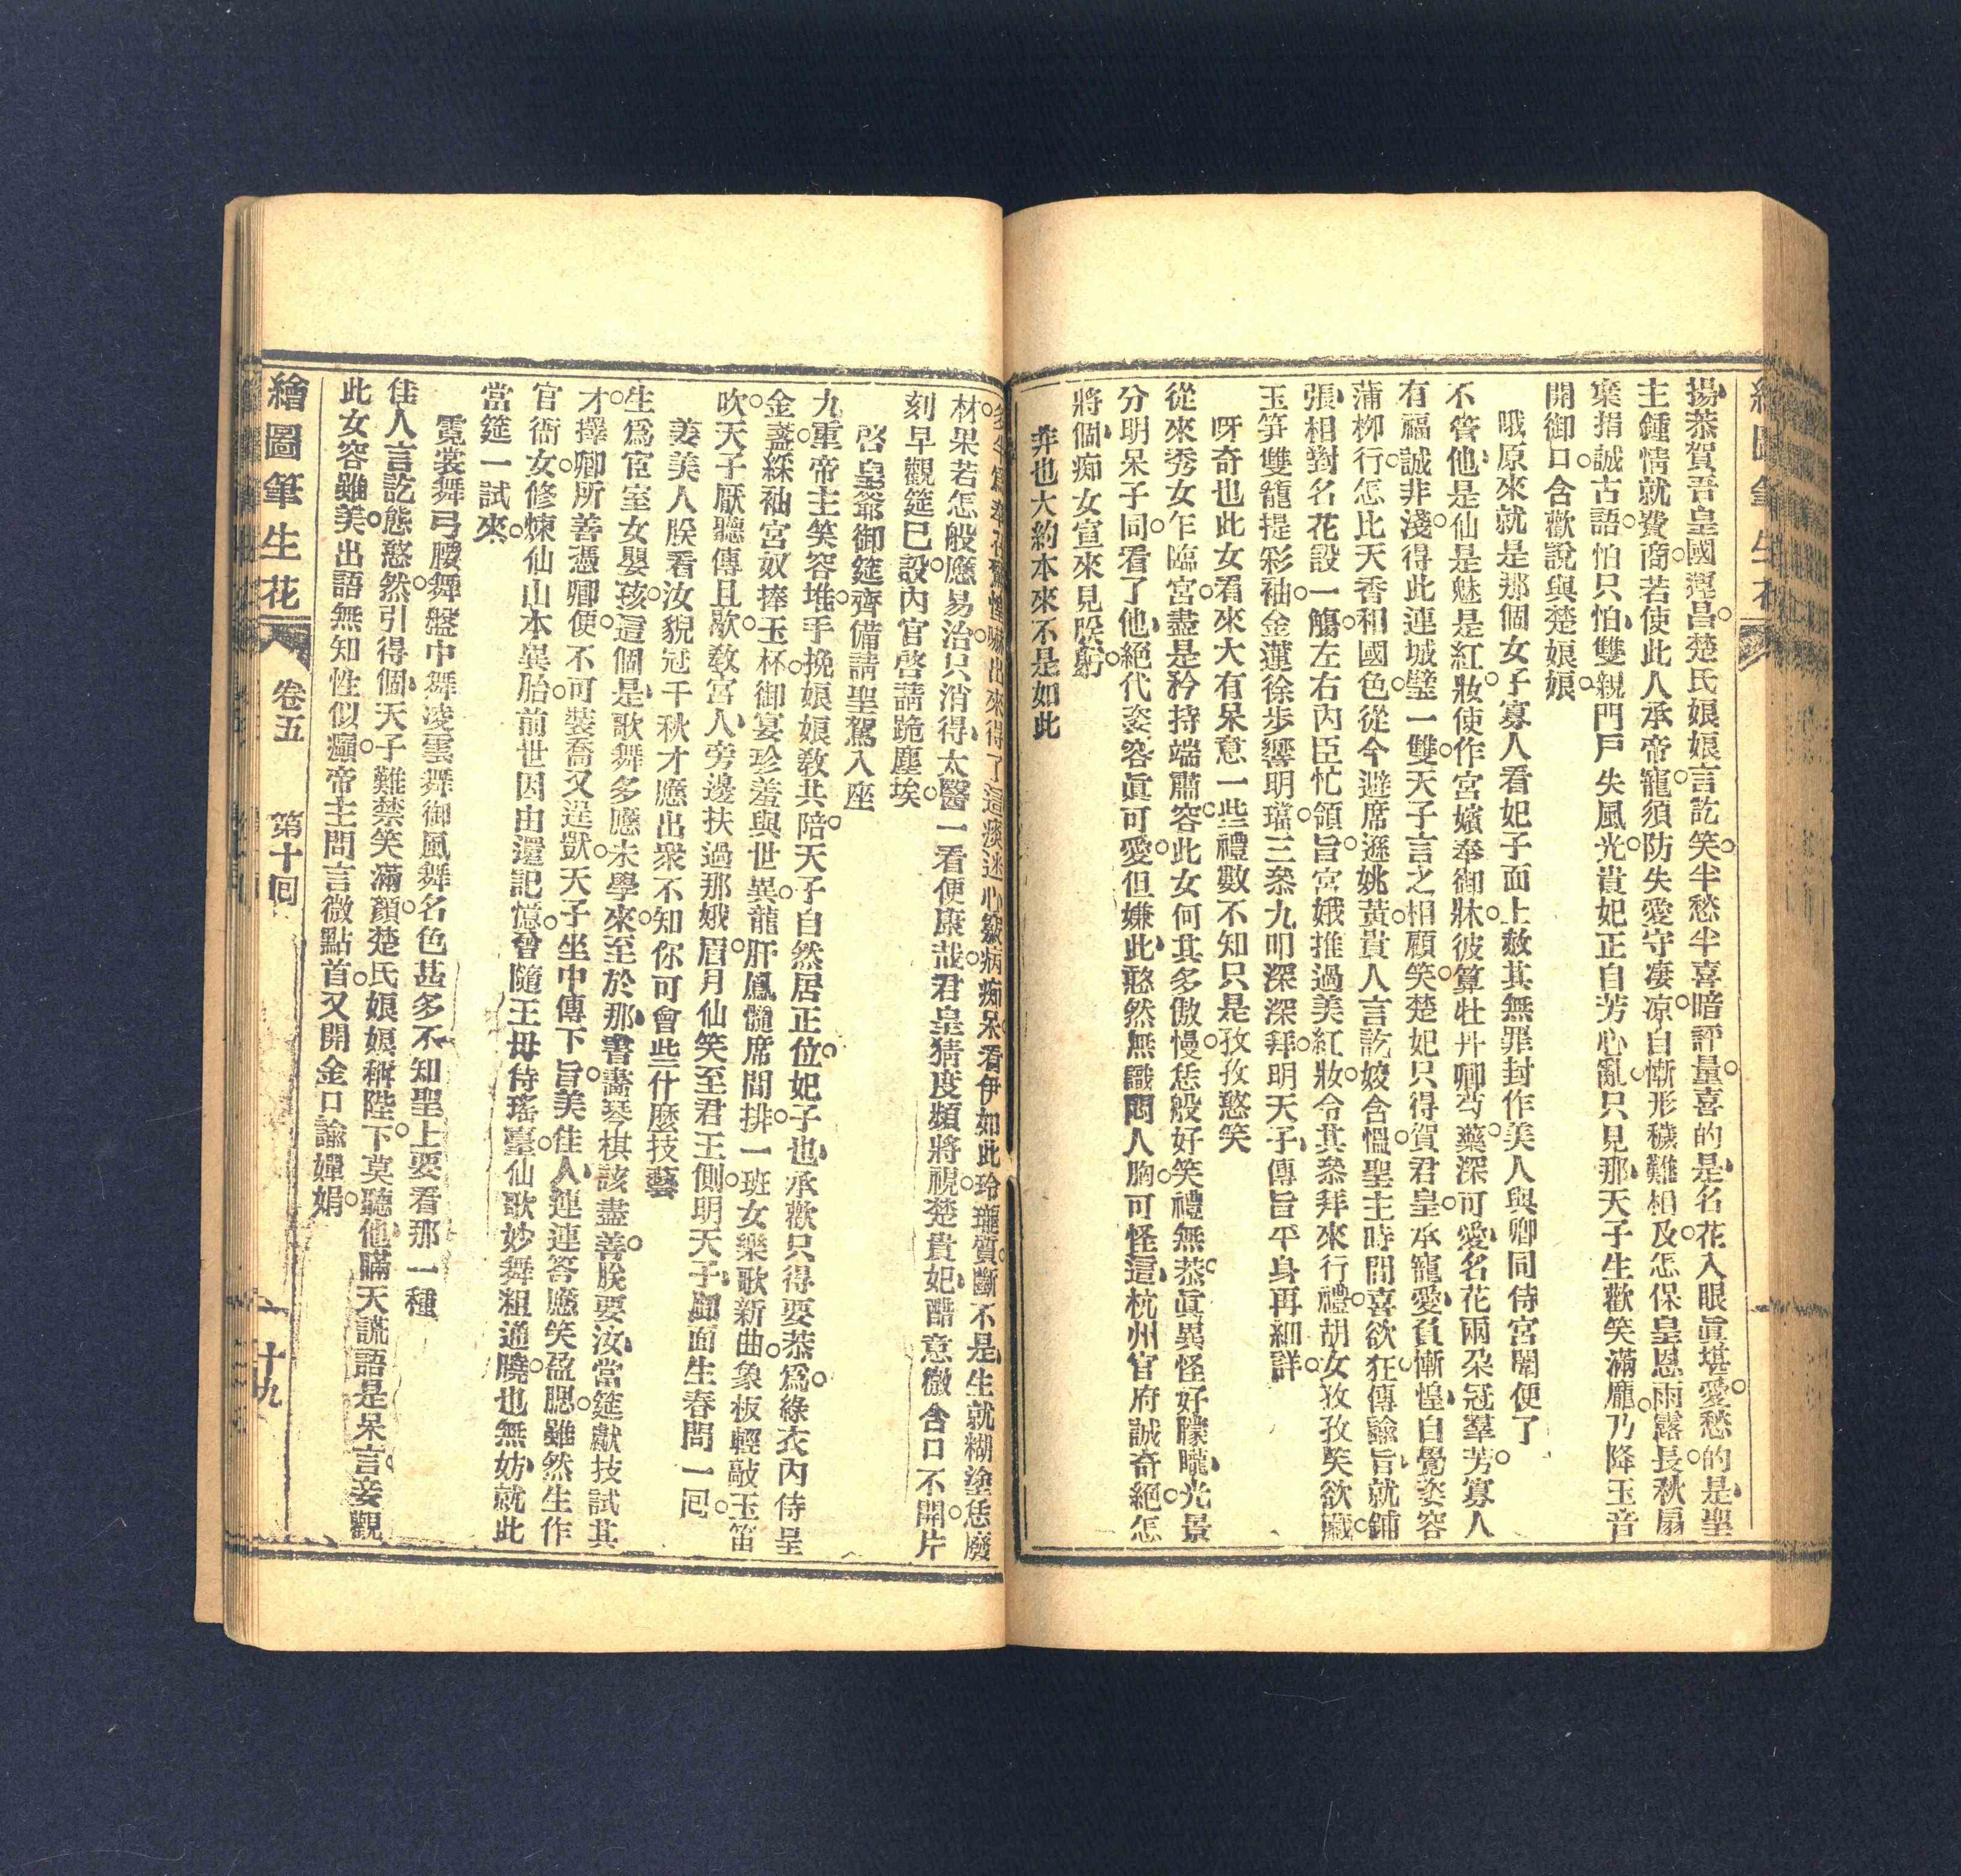 揚恭賀吾皇國運昌楚氏娘娘言訖笑半愁半喜暗評量喜的是名花入眼眞堪愛愁的是聖
主鍾情就費商若使此人承帝寵須防失愛守凄凉自慚形穢難相及怎保皇恩雨露長秋扇
棄捐誠古語怕只怕雙親門戶失風光貴妃正自芳心亂只見那天子生歡笑滿龐乃降玉音
開御口含歡說與楚娘娘
哦原來就是那個女子寡人看妃子面上赦其無罪封作美人與卿同侍宮闈便了
不管他是仙是魅是紅妝使作宮嬪奉御牀彼算牡丹卿芍藥深可愛名花兩朶冠羣芳寡人
有福誠非淺得此連城璧一雙天子言之相顧笑楚妃只得賀君皇承寵愛負慚惶自覺姿容
蒲柳行怎比天香和國色從今避席遜姚黃貴人言訖姣含慍聖主時間喜欲狂傳諭旨就鋪
張相對名花設一觴左右內臣忙領旨宮娥推過美紅妝令其叅拜來行禮胡女孜孜笑欲藏
玉笋雙籠提彩袖金蓮徐步響明璫三叅九叩深深拜明天子傳旨平身再細詳
呀奇也此女看來大有呆意一些禮數不知只是孜孜憨笑
從來秀女乍臨宮盡是矜持端肅容此女何其多傲慢恁般好笑禮無恭眞異怪好朦朧光景
分明呆子同看了他絕代姿容眞可愛但嫌此憨然無識悶人胸可怪這杭州官府誠奇絕怎
將個痴女宣來見朕躬
弄也大約本來不是如此
多半爲舉石驚惶嚇出來得了這痰迷心竅病痴呆看伊如此玲瓏質斷不是生就糊塗恁廢
材果若怎般應易治只消得太醫一看便康哉君皇猜度頻將視楚貴妃醋意微含口不開片
刻早觀筵已設內官啓請跪塵埃
啓皇爺御筵齊備請聖駕入座
九重帝主笑容堆手挽娘娘敎共陪天子自然居正位妃子也承歡只得要恭爲綠衣內侍呈
金盞綵袖宮奴捧玉杯御宴珍羞與世異龍肝鳳髓席間排一班女樂歌新曲象板輕敲玉笛
吹天子厭聽傳且歇敎宮人旁邊扶過那娥眉月仙笑至君王側明天子卹面生春問一囘
姜美人朕看汝貌冠千秋才應出衆不知你可會些什麼技藝
生爲宦室女嬰孩這個是歌舞多應未學來至於那書畵琴棋該盡善朕要汝當筵獻技試其
才擇卿所善憑卿便不可裝喬又逞獃天子坐中傳下旨美佳人連連答應笑盈腮雖然生作
官衙女修煉仙山本異胎前世因由還記憶曾隨王母侍瑤臺仙歌妙舞粗通曉也無妨就此
當筵一試來
霓裳舞弓腰舞盤中舞凌雲舞御風舞名色甚多不知聖上要看那一種
佳人言訖態憨然引得個天子難禁笑滿顏楚氏娘娘稱陛下莫聽他瞞天謊語是呆言妾觀
此女容雖美出語無知性似癲帝主問言微點首又開金口諭嬋娟
繪圖筆生花 卷五 第十回 十九